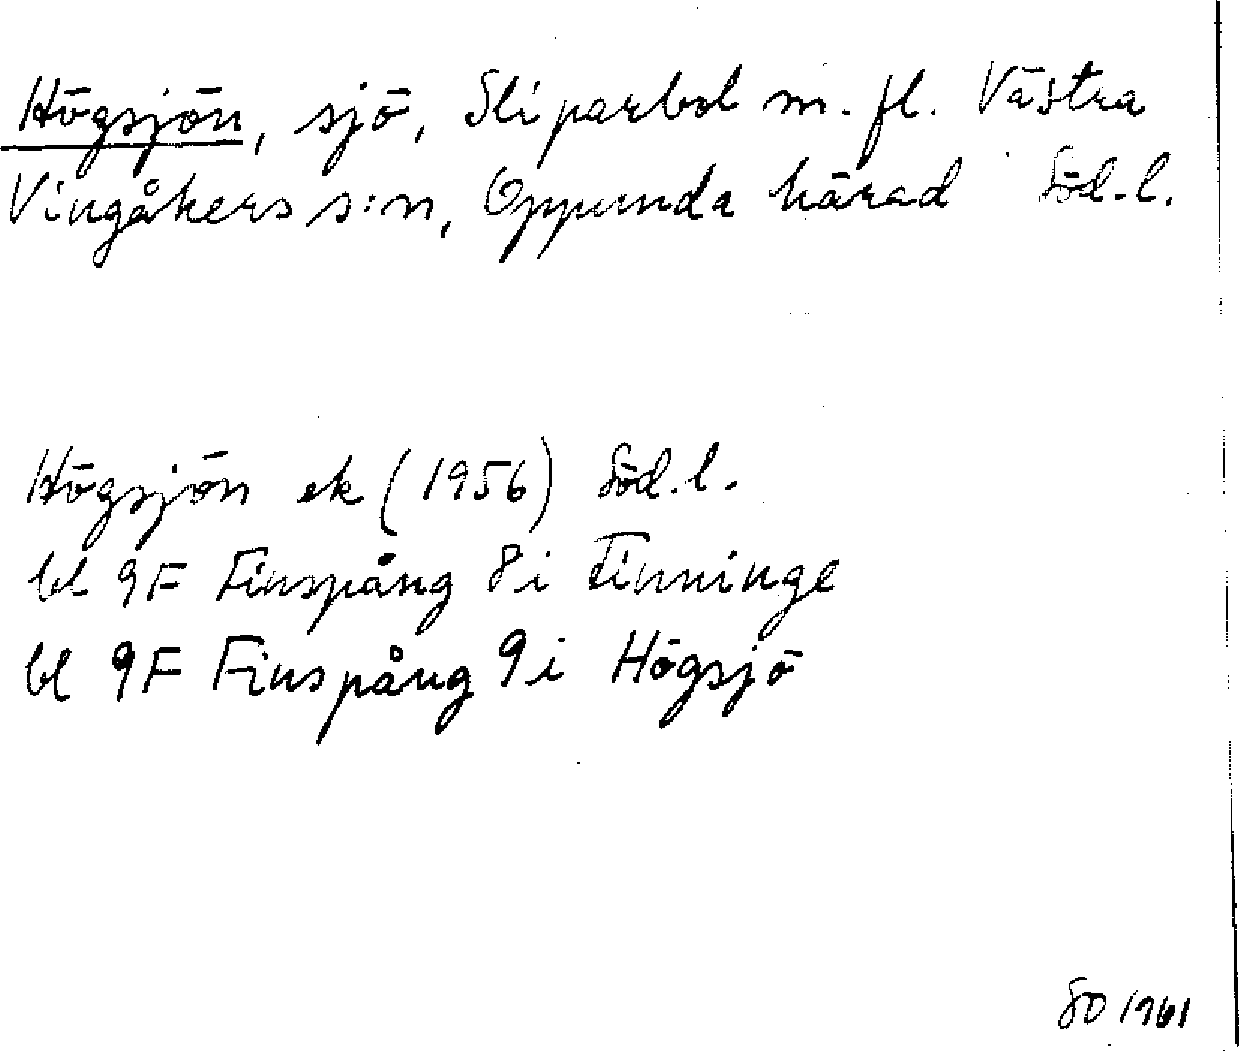 Högsjön, sjö, Sliparbol m. fl. Västra
Vingåkers s:n, Oppunda härad Söd.l.
Högsjön ek (1956) Söd.l.
bl 9F Finspång 8i Tinninge
bl 9F Finspång 9i Högsjö
SO 1961